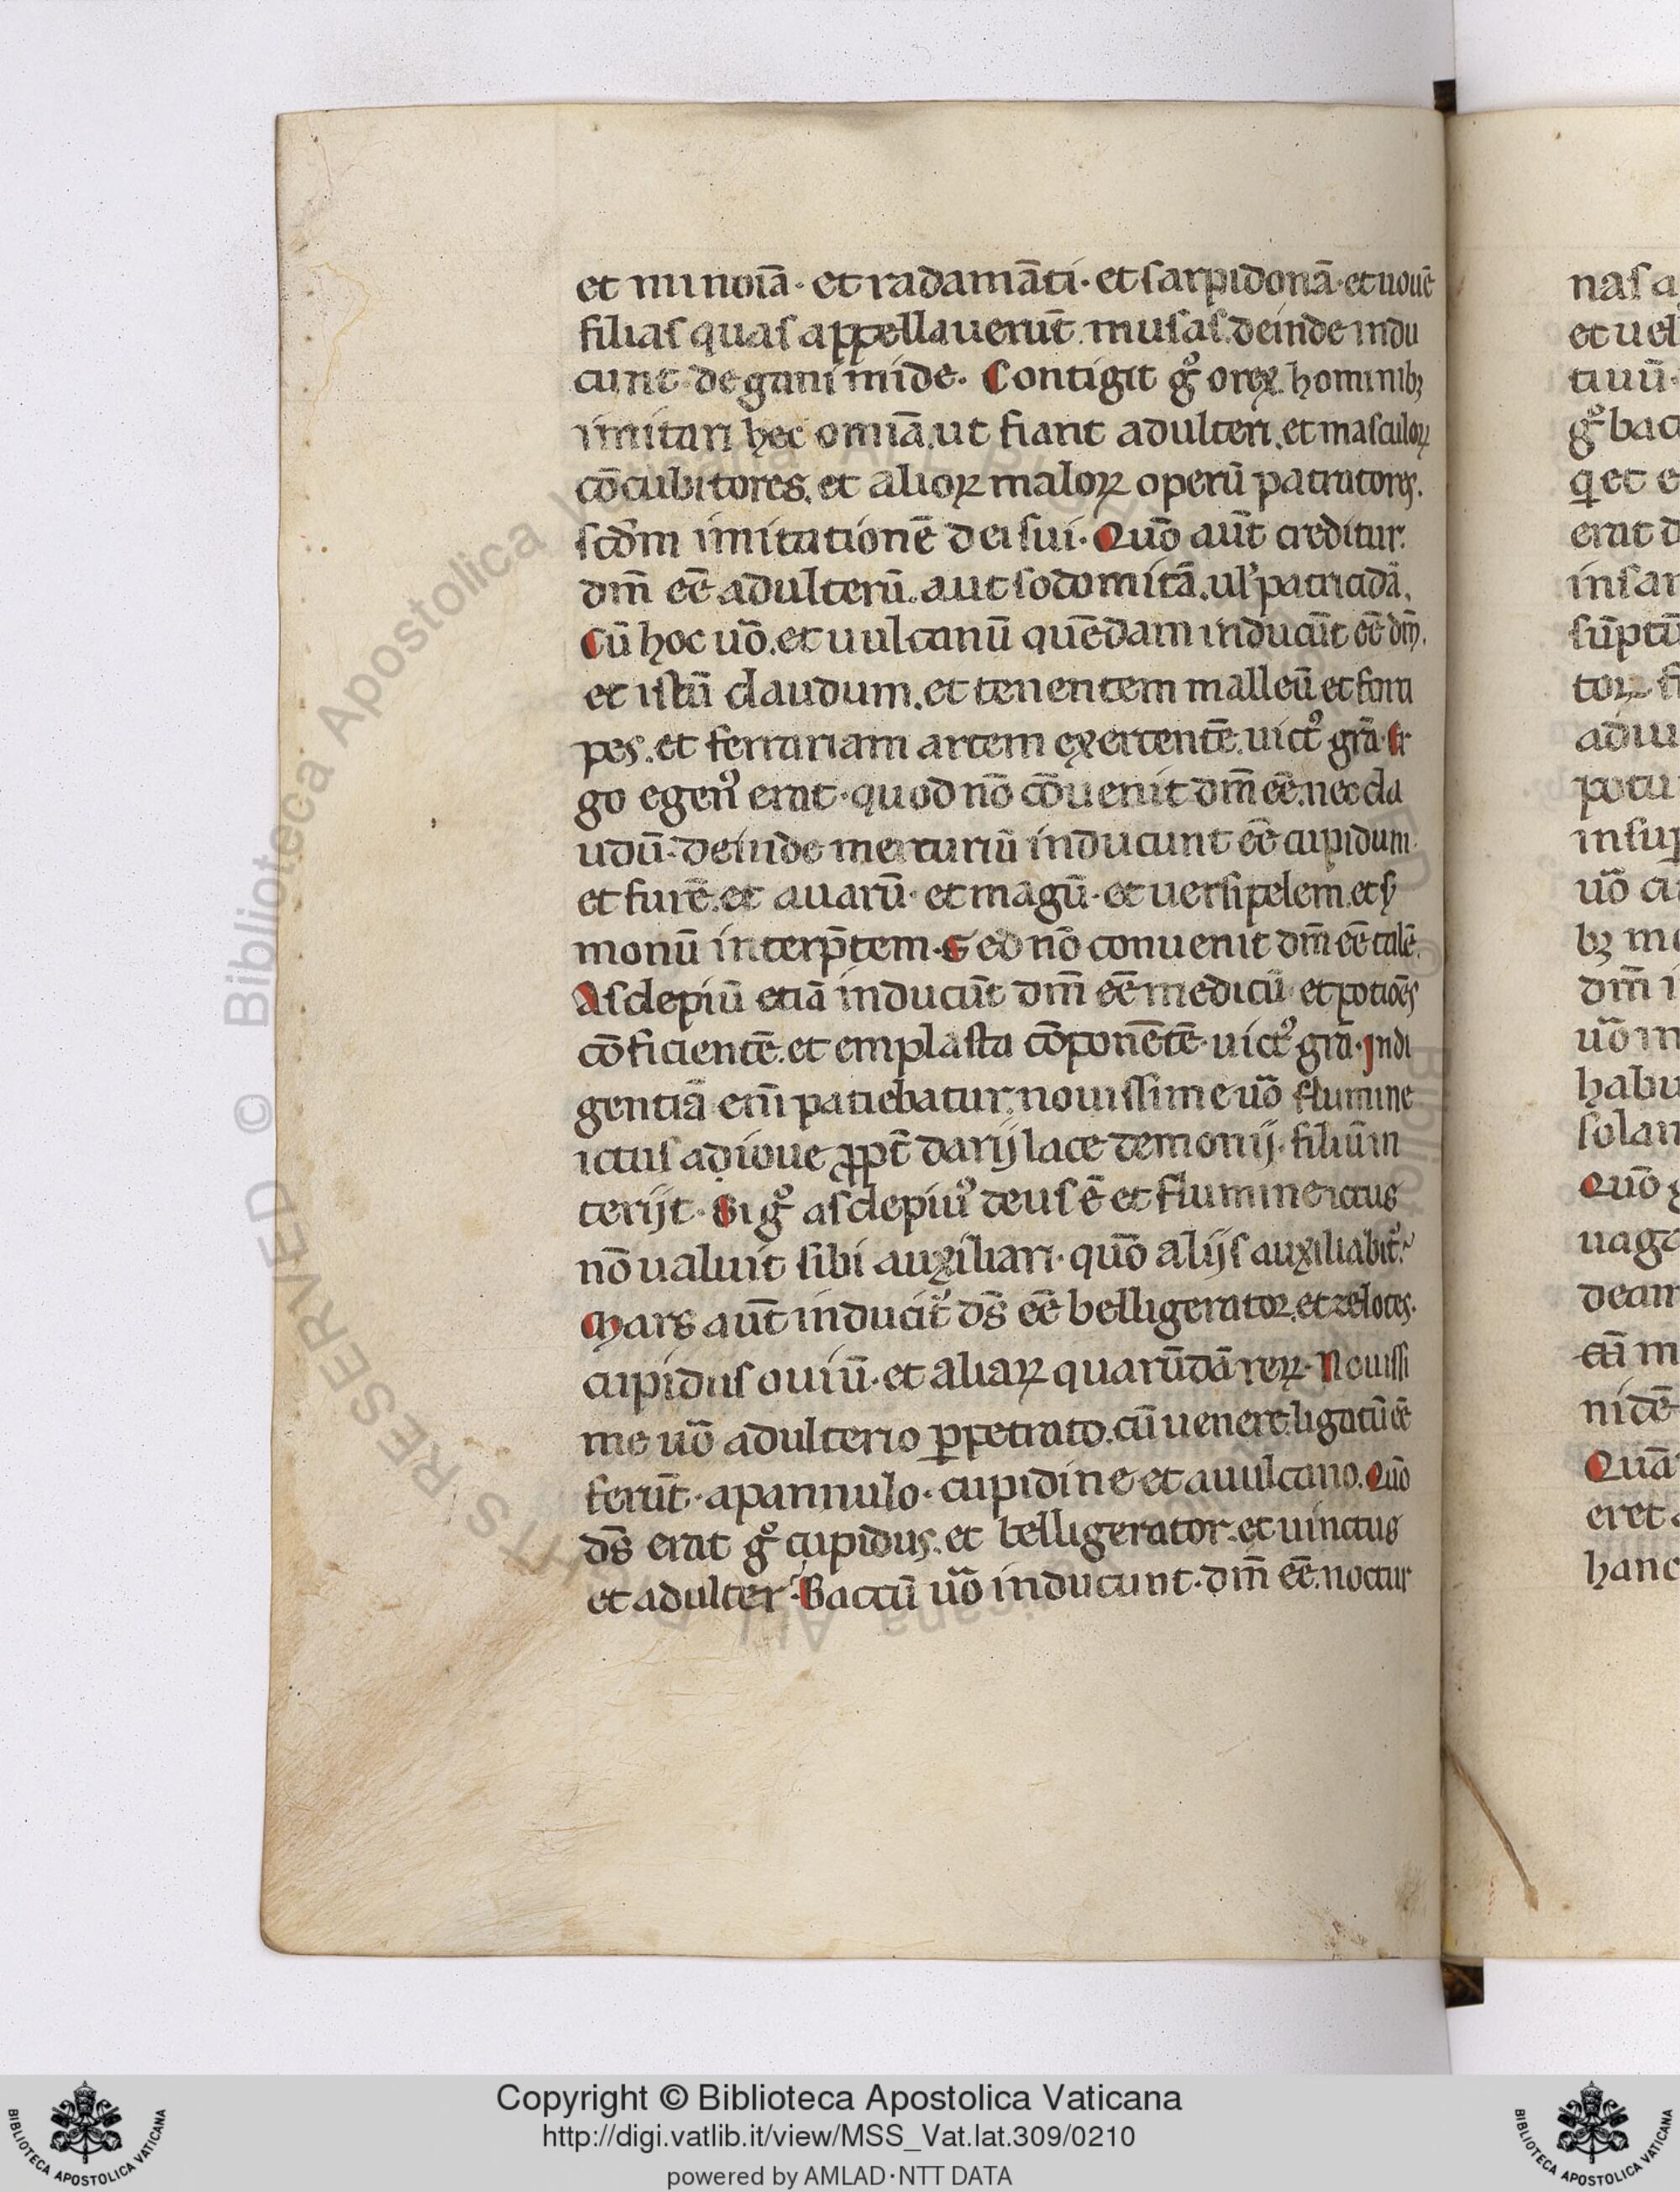 et minoiā · et radamāti · et sarpidonā · et nouē
filias quas appellauerūt musas. deinde indu
cunt de ganimide. Contigit gͦ o rex hominibꝫ
imitari hec omiā. ut fiant adulteri. et masculoꝝ
cōcubitores. et alioꝝ maloꝝ operū patratores.
scdm̄ imitationē dei sui. Quō aūt creditur.
dm̄ eē adulterū. aut sodomitā. ul' patricidā.
Cū hoc uō. et uulcanū quēdam inducūt eē dm̄.
et istū claudum. et tenentem malleū et forci
pes. et ferrariam artem exercentē. uictꝰ grā. Er
go egenꝰ erat · quod nō cōuenit dm̄ eē. nec cla
udū. deinde mercuriū inducunt eē cupidum.
et furē. et auarū · et magū · et uersipelem. et sy
monū interp̄tem. Sed nō conuenit dm̄ eē talē.
Asclepiū etiā inducūt dm̄ eē medicū et potiōēs
cōficientē. et emplasta cōponētē · uictꝰ grā. Indi
gentiā eni̅ patiebatur. nouissime uō flumine
ictus a dioue ꝓpt̄ darij lace demonij · filiū in
terijt. Si gͦ asclepiuꝰ deus ē et flumine ictus
nō ualuit sibi auxiliari · quō alijs auxiliabit᷑.
Mars aūt inducit᷑ ds̄ eē belligerator. et zelotes.
cupidus ouiū · et aliaꝝ quarūdā reꝝ. Nouissi
me uō adulterio ꝑpetrato. cū uenere ligatū eē
ferūt · a pannulo · cupidine et a uulcano. Quō
ds̄ erat gͦ cupidus. et belligerator. et uinctus
et adulter. Baccū uō inducunt · dm̄ eē. noctur
nas a
et uel
tiuū.
gͦ bac
q̇ et e
erat d
insan
sūptū
toꝝ fi
adiu
potu
insup
uō cu
bꝫ me
dm̄ i
uō in
habu
solan
Quō g
uaga
deam
nidē
Quā
eret a
hanc
© Biblioteca Apostolica Vaticana ALL RIGHTS RESERVED
Copyright © Biblioteca Apostolica Vaticana
http://digi.vatlib.it/view/MSS_Vat.lat.309/0210
powered by AMLAD·NTT DATA
BIBLIOTECA APOSTOLICA VATICANA
BIBLIOTECA APOSTOLICA VATICANA